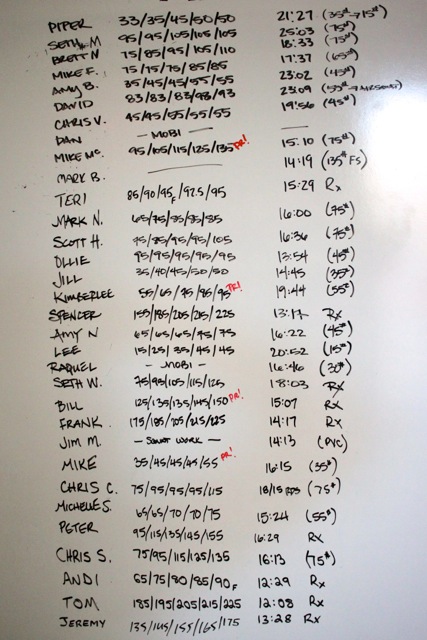 PIPER 33/35/45/50/50 21:27 (35# → 15#)
SETH M 95/95/105/105/105 25:03 (75#)
BRETT N 75/85/95/105/110 18:33 (75#)
MIKE F. 75/75/75/85/85 17:37 (65#)
AMY B. 35/45/45/55/55 23:02 (45#)
DAVID 83/83/83/93/93 23:09
CHRIS V. 45/45/55/55/55 19:56 (45#)
DAN — MOBI — —
MIKE MC. 95/105/115/125/135 PR! 15:10 (75#)
MARK B. — 14:19 (135# FS)
TERI 85/90/95F/92.5/95 15:29 Rx
MARK N. 65/75/85/85/85 16:00 (75#)
SCOTT H. 75/85/95/95/105 16:36 (75#)
OLLIE 95/95/95/95 13:54 (45#)
JILL 35/40/45/50/50 14:45 (35#)
KIMBERLEE 55/65/75/85/95 PR! 19:44 (55#)
SPENCER 155/185/205/215/225 13:17 Rx
AMY N 65/65/65/75/75 16:22 (45#)
LEE 15/25/35/45/45 20:52 (15#)
RAQUEL — MOBI — 16:46 (30#)
SETH W. 75/95/105/115/125 18:03 Rx
BILL 125/135/135/145/150 PR! 15:07 Rx
FRANK 175/185/205/215/225 14:17 Rx
JIM M. — SQUAT WORK — 14:13 (PVC)
MIKE 35/45/45/45/55 PR! 16:15 (35#)
CHRIS C. 75/95/95/95/115 18/15 RDS (75#)
MICHELE S. 65/65/70/70/75 15:24 (55#)
PETER 95/115/135/145/155 16:29 Rx
CHRIS S. 75/95/115/125/135 16:13 (75#)
ANDI 65/75/80/85/90F 12:29 Rx
TOM 185/195/205/215/225 12:08 Rx
JEREMY 135/145/155/165/175 13:28 Rx